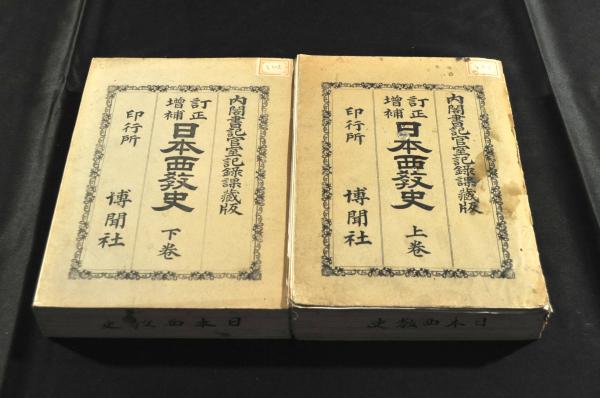 内閣書記官室記錄課藏版
訂正
增補
日本西教史
上卷
印行所
博聞社
日本西教史
内閣書記官室記錄課藏版
訂正
增補
日本西教史
下卷
印行所
博聞社
日本西教史